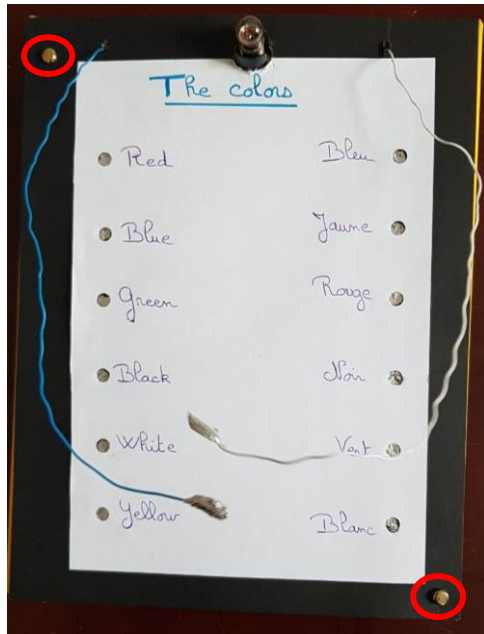 The colors
Red
Blue
Green
Black
White
Yellow
Bleu
Jaune
Rouge
Noir
Vert
Blanc